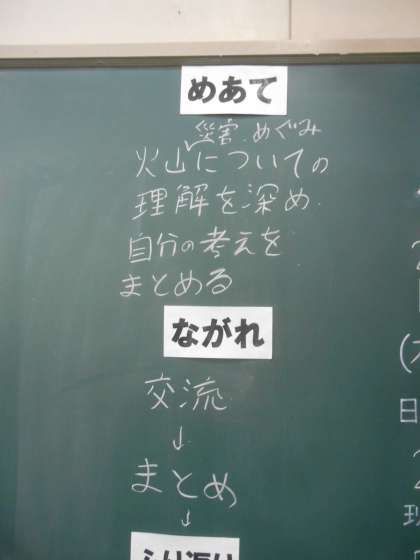 めあて
災害、めぐみ
火山についての
理解を深め
自分の考えを
まとめる
ながれ
交流
↓
まとめ
↓
ふり返り